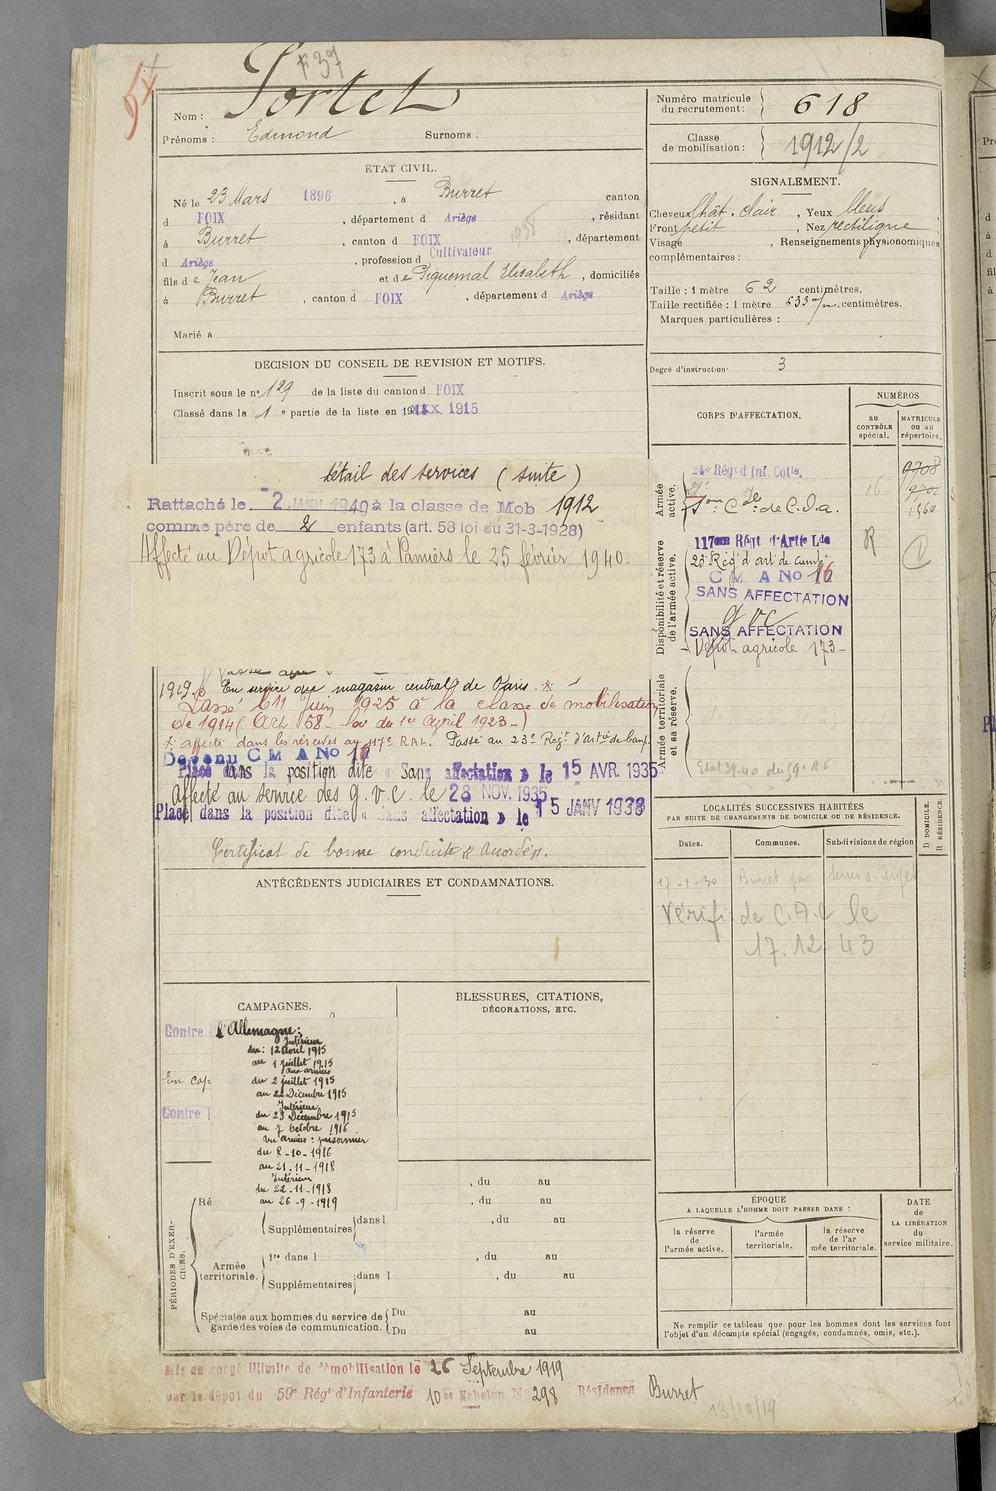 F 37
Nom : Portet
Prénoms : Edmond Surnoms :
ÉTAT CIVIL.
Né le 23 Mars 1896, à Burret canton
d FOIX, département d Ariège, résidant
à Burret, canton d FOIX, département
d Ariège, profession d Cultivateur
fils de Jean et de Piquemal Elisabeth, domiciliés
à Burret, canton d FOIX, département d Ariège
Marié à
DÉCISION DU CONSEIL DE REVISION ET MOTIFS.
Inscrit sous le n° 129 de la liste du canton d FOIX
Classé dans la 1e partie de la liste en 1915
détail des services (suite)
Rattaché le 2 JANV 1940 à la classe de Mob 1912
comme père de 2 enfants (art. 58 loi du 31-3-1928)
Affecté au Dépot agricole 173 à Pamiers le 25 février 1940.
1919. En service au magasin central de Paris.
Passé le 11 juin 1925 à la classe de mobilisation
de 1914 (Art 58 - loi du 1er April 1923-)
affecté dans les réserves au 117e RAL. Passé au 23e Régt d'Artie de camp.
Devenu C M A No 16
Placé dans la position dite « Sans affectation » le 15 AVR. 1935
Affecté au service des g.v.c. le 28 NOV. 1935
Placé dans la position dite « Sans affectation » le 15 JANV 1938
Certificat de bonne conduite "Accordé".
ANTÉCÉDENTS JUDICIAIRES ET CONDAMNATIONS.
CAMPAGNES.
Contre l'Allemagne :
Intérieur
du : 12 avril 1915
au 1 juillet 1915
aux armées
du 2 juillet 1915
au 22 Décembre 1915
En cap
Intérieur
Contre l
du 23 Décembre 1915
au 7 Octobre 1916
aux armées : prisonnier
du 8-10-1916
au 21-11-1918
Intérieur
du 22-11-1918
au 26-9-1919
BLESSURES, CITATIONS,
DÉCORATIONS, ETC.
PÉRIODES D'EXERCICES.
, du au
Ré , du au
Supplémentaires dans l , du au
Armée territoriale. 1re dans l , du au
Supplémentaires dans l , du au
Spéciales aux hommes du service de garde des voies de communication. Du au
Du au
Mis en congé illimité de démobilisation le 26 Septembre 1919
par le dépot du 59e Régt d'Infanterie 10e Echelon No 298 Résidence Burret
13/10/19
Numéro matricule du recrutement : 618
Classe de mobilisation : 1912/2
SIGNALEMENT.
Cheveux Chât. clair, Yeux bleus
Front petit, Nez rectiligne
Visage , Renseignements physionomiques
complémentaires :
Taille : 1 mètre 62 centimètres.
Taille rectifiée : 1 mètre 633 m/m centimètres.
Marques particulières :
Degré d'instruction 3
CORPS D'AFFECTATION.
NUMÉROS
au CONTRÔLE spécial.
MATRICULE ou au répertoire.
Armée active.
24e Régt d Inf. Colle.
de C.O.a.
Disponibilité et réserve de l'armée active.
117ème Régt d'Artie Lde
23e Rég d'art de camp
C M A No 16
SANS AFFECTATION
g v c
SANS AFFECTATION
Dépot agricole 173
R
Armée territoriale et sa réserve.
LOCALITÉS SUCCESSIVES HABITÉES
PAR SUITE DE CHANGEMENTS DE DOMICILE OU DE RÉSIDENCE.
D DOMICILE.
R RÉSIDENCE.
Dates. Communes. Subdivisions de région
17-1-30 Burret par
Vérifi de C.A.C le
17.12.43
ÉPOQUE
A LAQUELLE L'HOMME DOIT PASSER DANS :
la réserve de l'armée active.
l'armée territoriale.
la réserve de l'armée territoriale.
DATE de LA LIBÉRATION du service militaire.
Ne remplir ce tableau que pour les hommes dont les services font
l'objet d'un décompte spécial (engagés, condamnés, omis, etc.).